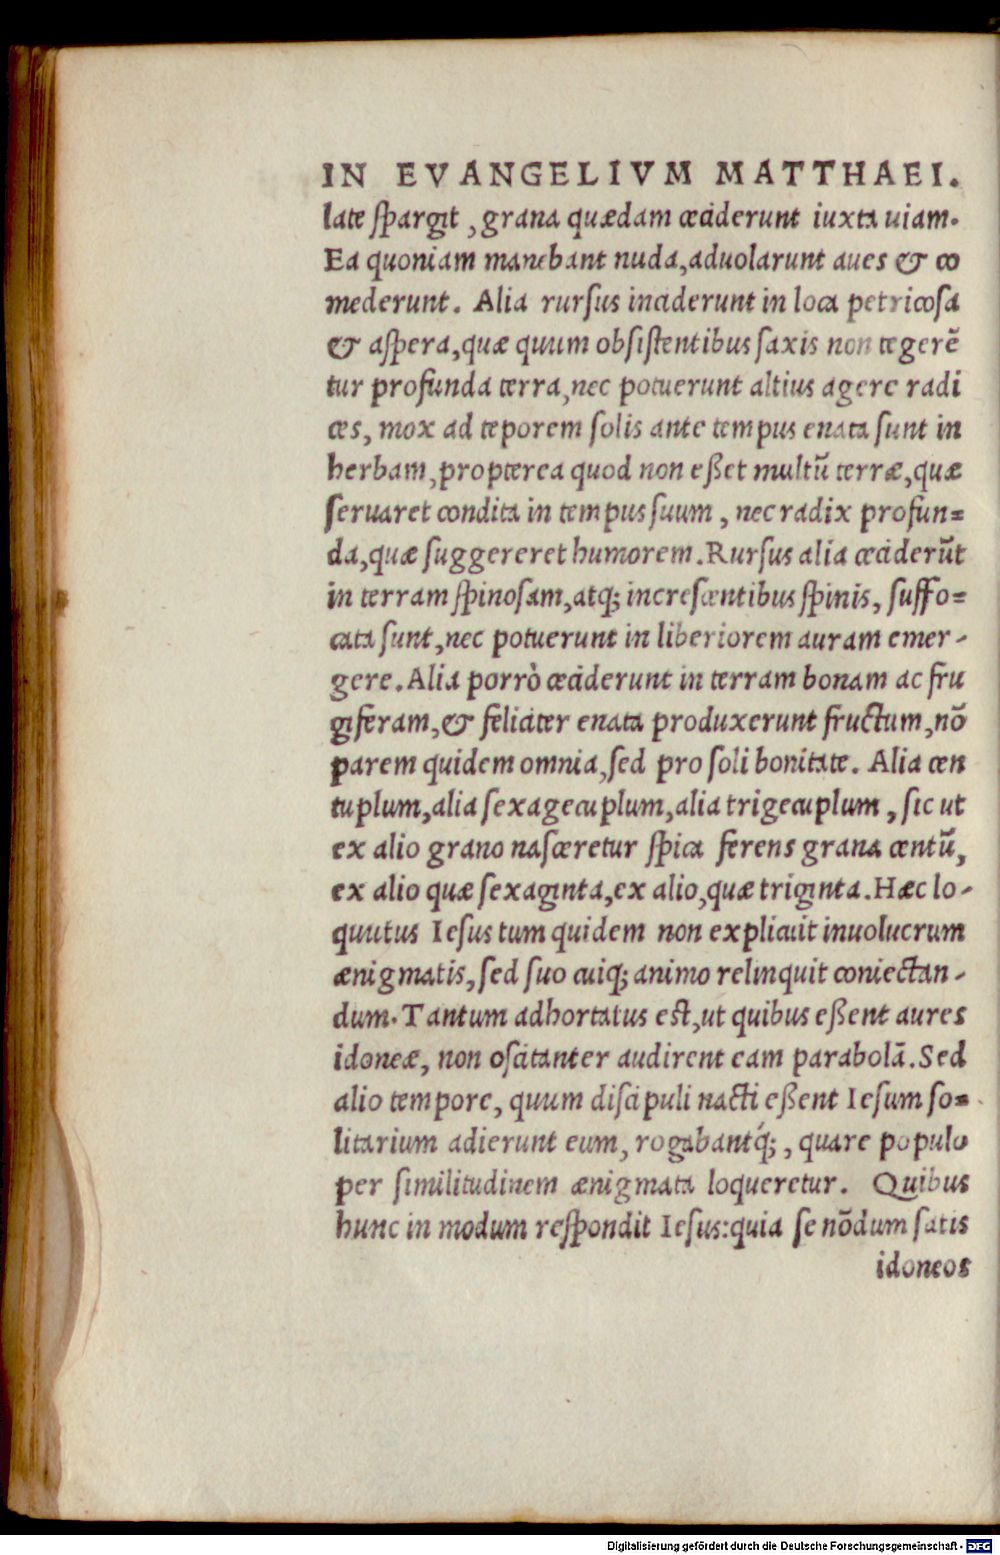 IN EVANGELIVM MATTHAEI.
late spargit, grana quædam ceciderunt iuxta uiam.
Ea quoniam manebant nuda, aduolarunt aues & co
mederunt. Alia rursus inciderunt in loca petricosa
& aspera, quæ quum obsistentibus saxis non tegerẽ
tur profunda terra, nec potuerunt altius agere radi
ces, mox ad teporem solis ante tempus enata sunt in
herbam, propterea quod non eßet multũ terræ, quæ
seruaret condita in tempus suum, nec radix profun=
da, quæ suggereret humorem. Rursus alia ceciderũt
in terram spinosam, atq; increscentibus spinis, suffo=
cata sunt, nec potuerunt in liberiorem auram emer-
gere. Alia porrò ceciderunt in terram bonam ac fru
giferam, & feliciter enata produxerunt fructum, nõ
parem quidem omnia, sed pro soli bonitate. Alia cen
tuplum, alia sexagecuplum, alia trigecuplum, sic ut
ex alio grano nasceretur spica ferens grana centũ,
ex alio quæ sexaginta, ex alio, quæ triginta. Hæc lo-
quutus Iesus tum quidem non explicuit inuolucrum
ænigmatis, sed suo cuiq; animo relinquit coniectan-
dum. Tantum adhortatus est, ut quibus eßent aures
idoneæ, non oscitanter audirent eam parabolã. Sed
alio tempore, quum discipuli nacti eßent Iesum so=
litarium adierunt eum, rogabantq́;, quare populo
per similitudinem ænigmata loqueretur. Quibus
hunc in modum respondit Iesus: quia se nõdum satis
idoneos
Digitalisierung gefördert durch die Deutsche Forschungsgemeinschaft - DFG